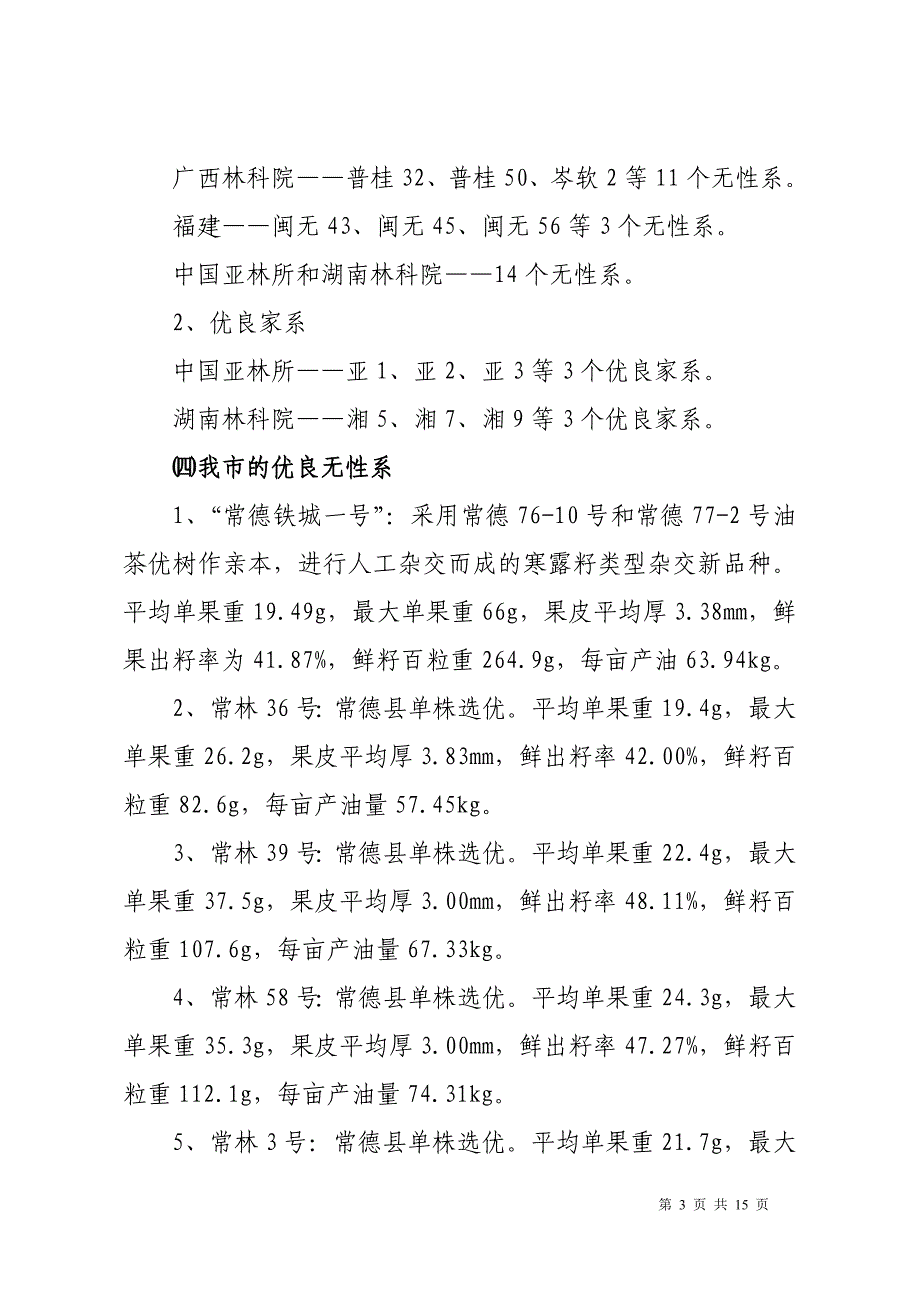 广西林科院——普桂 32、普桂 50、岑软 2 等 11 个无性系。
福建——闽无 43、闽无 45、闽无 56 等 3 个无性系。
中国亚林所和湖南林科院——14 个无性系。
2、优良家系
中国亚林所——亚 1、亚 2、亚 3 等 3 个优良家系。
湖南林科院——湘 5、湘 7、湘 9 等 3 个优良家系。
㈣我市的优良无性系
1、“常德铁城一号”：采用常德 76-10 号和常德 77-2 号油
茶优树作亲本，进行人工杂交而成的寒露籽类型杂交新品种。
平均单果重 19.49g，最大单果重 66g，果皮平均厚 3.38mm，鲜
果出籽率为 41.87%，鲜籽百粒重 264.9g，每亩产油 63.94kg。
2、常林 36 号：常德县单株选优。平均单果重 19.4g，最大
单果重 26.2g，果皮平均厚 3.83mm，鲜出籽率 42.00%，鲜籽百
粒重 82.6g，每亩产油量 57.45kg。
3、常林 39 号：常德县单株选优。平均单果重 22.4g，最大
单果重 37.5g，果皮平均厚 3.00mm，鲜出籽率 48.11%，鲜籽百
粒重 107.6g，每亩产油量 67.33kg。
4、常林 58 号：常德县单株选优。平均单果重 24.3g，最大
单果重 35.3g，果皮平均厚 3.00mm，鲜出籽率 47.27%，鲜籽百
粒重 112.1g，每亩产油量 74.31kg。
5、常林 3 号：常德县单株选优。平均单果重 21.7g，最大
第 3 页 共 15 页